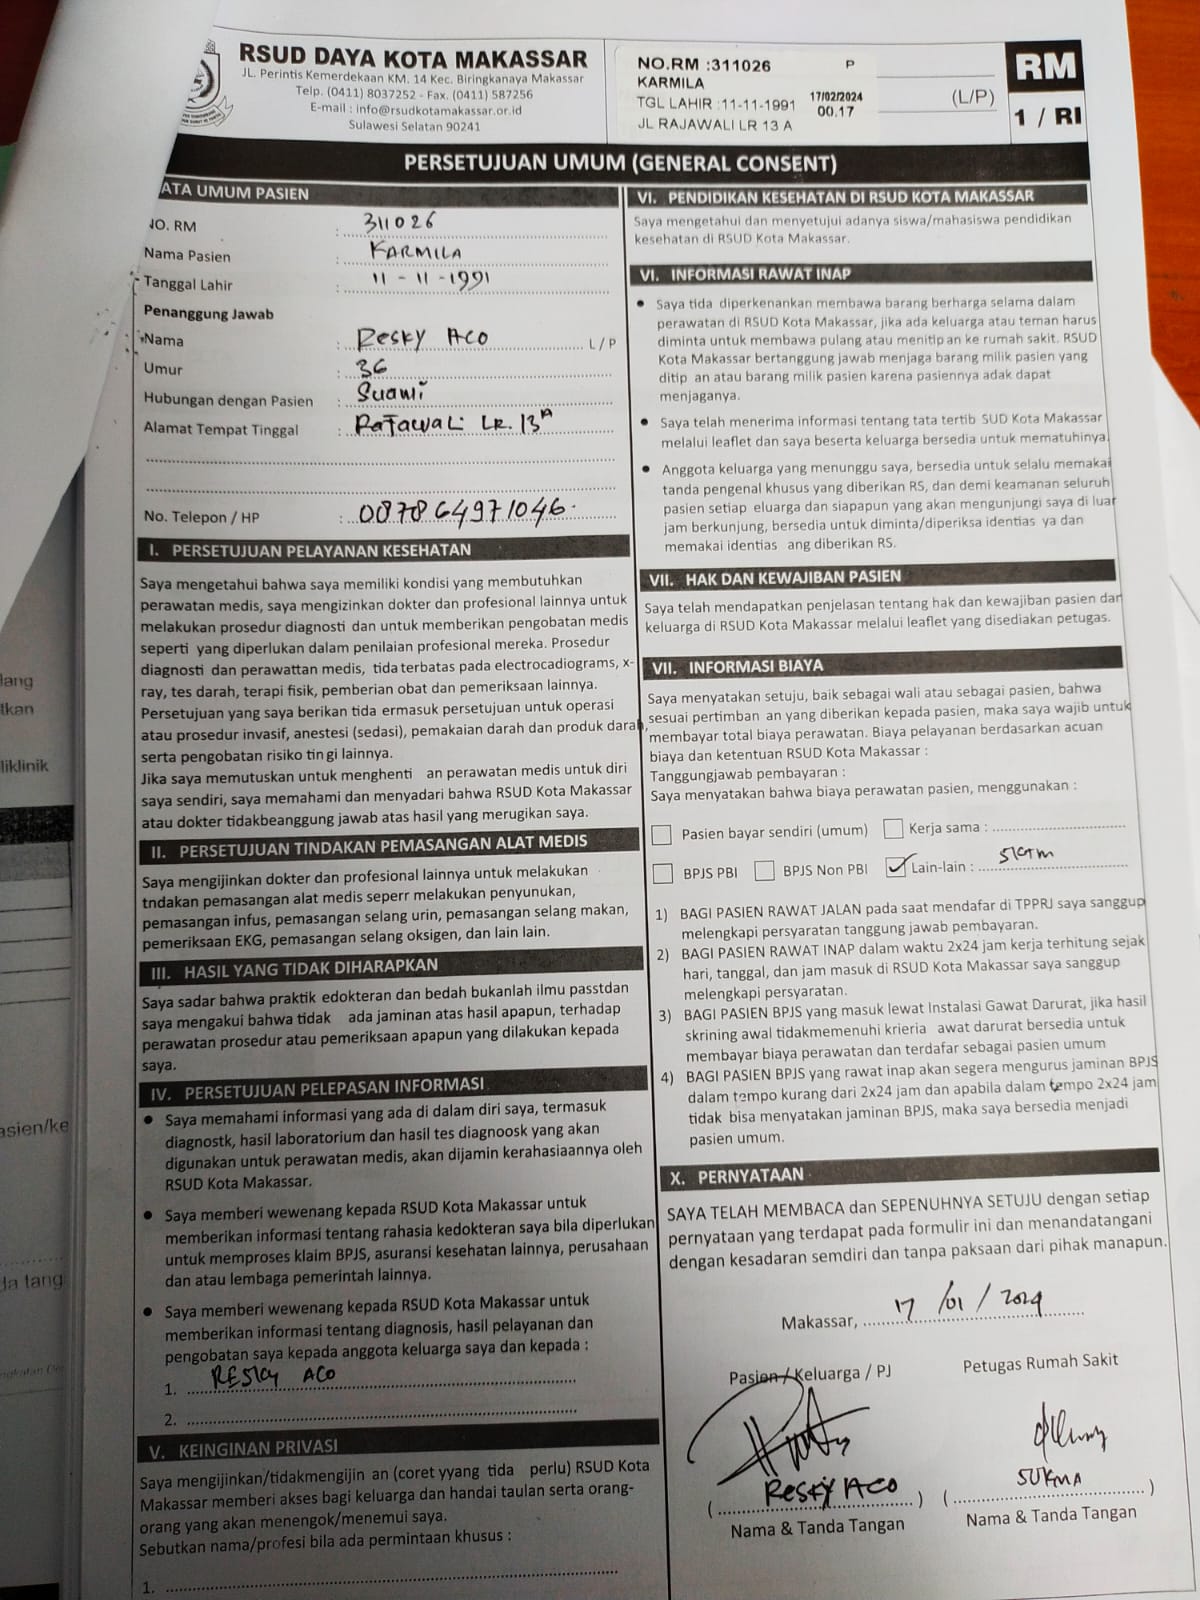 RSUD DAYA KOTA MAKASSAR
JL. Perintis Kemerdekaan KM. 14 Kec. Biringkanaya Makassar
Telp. (0411) 8037252 - Fax. (0411) 587256
E-mail : info@rsudkotamakassar.or.id
Sulawesi Selatan 90241
NO.RM :311026 P
KARMILA
TGL LAHIR :11-11-1991
JL RAJAWALI LR 13 A
17/02/2024
00.17
(L/P)
RM
1 / RI
PERSETUJUAN UMUM (GENERAL CONSENT)
ATA UMUM PASIEN
NO. RM : 311026
Nama Pasien : KARMILA
Tanggal Lahir : 11 - 11 - 1991
Penanggung Jawab
Nama : Resky ACO L / P
Umur : 36
Hubungan dengan Pasien : Suami
Alamat Tempat Tinggal : RaJawali LR. 13 A
No. Telepon / HP : 087864971046.
I. PERSETUJUAN PELAYANAN KESEHATAN
Saya mengetahui bahwa saya memiliki kondisi yang membutuhkan
perawatan medis, saya mengizinkan dokter dan profesional lainnya untuk
melakukan prosedur diagnosti dan untuk memberikan pengobatan medis
seperti yang diperlukan dalam penilaian profesional mereka. Prosedur
diagnosti dan perawattan medis, tida terbatas pada electrocadiograms, x-
ray, tes darah, terapi fisik, pemberian obat dan pemeriksaan lainnya.
Persetujuan yang saya berikan tida ermasuk persetujuan untuk operasi
atau prosedur invasif, anestesi (sedasi), pemakaian darah dan produk darah,
serta pengobatan risiko tin gi lainnya.
Jika saya memutuskan untuk menghenti an perawatan medis untuk diri
saya sendiri, saya memahami dan menyadari bahwa RSUD Kota Makassar
atau dokter tidakbeanggung jawab atas hasil yang merugikan saya.
II. PERSETUJUAN TINDAKAN PEMASANGAN ALAT MEDIS
Saya mengijinkan dokter dan profesional lainnya untuk melakukan
tndakan pemasangan alat medis seperr melakukan penyunukan,
pemasangan infus, pemasangan selang urin, pemasangan selang makan,
pemeriksaan EKG, pemasangan selang oksigen, dan lain lain.
III. HASIL YANG TIDAK DIHARAPKAN
Saya sadar bahwa praktik edokteran dan bedah bukanlah ilmu passtdan
saya mengakui bahwa tidak ada jaminan atas hasil apapun, terhadap
perawatan prosedur atau pemeriksaan apapun yang dilakukan kepada
saya.
IV. PERSETUJUAN PELEPASAN INFORMASI
• Saya memahami informasi yang ada di dalam diri saya, termasuk
diagnostk, hasil laboratorium dan hasil tes diagnoosk yang akan
digunakan untuk perawatan medis, akan dijamin kerahasiaannya oleh
RSUD Kota Makassar.
• Saya memberi wewenang kepada RSUD Kota Makassar untuk
memberikan informasi tentang rahasia kedokteran saya bila diperlukan
untuk memproses klaim BPJS, asuransi kesehatan lainnya, perusahaan
dan atau lembaga pemerintah lainnya.
• Saya memberi wewenang kepada RSUD Kota Makassar untuk
memberikan informasi tentang diagnosis, hasil pelayanan dan
pengobatan saya kepada anggota keluarga saya dan kepada :
1. RESKY ACO
2.
V. KEINGINAN PRIVASI
Saya mengijinkan/tidakmengijin an (coret yyang tida perlu) RSUD Kota
Makassar memberi akses bagi keluarga dan handai taulan serta orang-
orang yang akan menengok/menemui saya.
Sebutkan nama/profesi bila ada permintaan khusus :
1.
VI. PENDIDIKAN KESEHATAN DI RSUD KOTA MAKASSAR
Saya mengetahui dan menyetujui adanya siswa/mahasiswa pendidikan
kesehatan di RSUD Kota Makassar.
VI. INFORMASI RAWAT INAP
• Saya tida diperkenankan membawa barang berharga selama dalam
perawatan di RSUD Kota Makassar, jika ada keluarga atau teman harus
diminta untuk membawa pulang atau menitip an ke rumah sakit. RSUD
Kota Makassar bertanggung jawab menjaga barang milik pasien yang
ditip an atau barang milik pasien karena pasiennya adak dapat
menjaganya.
• Saya telah menerima informasi tentang tata tertib SUD Kota Makassar
melalui leaflet dan saya beserta keluarga bersedia untuk mematuhinya.
• Anggota keluarga yang menunggu saya, bersedia untuk selalu memakai
tanda pengenal khusus yang diberikan RS, dan demi keamanan seluruh
pasien setiap eluarga dan siapapun yang akan mengunjungi saya di luar
jam berkunjung, bersedia untuk diminta/diperiksa identias ya dan
memakai identias ang diberikan RS.
VII. HAK DAN KEWAJIBAN PASIEN
Saya telah mendapatkan penjelasan tentang hak dan kewajiban pasien dar
keluarga di RSUD Kota Makassar melalui leaflet yang disediakan petugas.
VII. INFORMASI BIAYA
Saya menyatakan setuju, baik sebagai wali atau sebagai pasien, bahwa
sesuai pertimban an yang diberikan kepada pasien, maka saya wajib untuk
membayar total biaya perawatan. Biaya pelayanan berdasarkan acuan
biaya dan ketentuan RSUD Kota Makassar :
Tanggungjawab pembayaran :
Saya menyatakan bahwa biaya perawatan pasien, menggunakan :
Pasien bayar sendiri (umum) Kerja sama :
BPJS PBI BPJS Non PBI Lain-lain :
1) BAGI PASIEN RAWAT JALAN pada saat mendafar di TPPRJ saya sanggup
melengkapi persyaratan tanggung jawab pembayaran.
2) BAGI PASIEN RAWAT INAP dalam waktu 2x24 jam kerja terhitung sejak
hari, tanggal, dan jam masuk di RSUD Kota Makassar saya sanggup
melengkapi persyaratan.
3) BAGI PASIEN BPJS yang masuk lewat Instalasi Gawat Darurat, jika hasil
skrining awal tidakmemenuhi krieria awat darurat bersedia untuk
membayar biaya perawatan dan terdafar sebagai pasien umum
4) BAGI PASIEN BPJS yang rawat inap akan segera mengurus jaminan BPJS
dalam tempo kurang dari 2x24 jam dan apabila dalam tempo 2x24 jam
tidak bisa menyatakan jaminan BPJS, maka saya bersedia menjadi
pasien umum.
X. PERNYATAAN
SAYA TELAH MEMBACA dan SEPENUHNYA SETUJU dengan setiap
pernyataan yang terdapat pada formulir ini dan menandatangani
dengan kesadaran semdiri dan tanpa paksaan dari pihak manapun.
Makassar, 17 / 01 / 2024
Pasien / Keluarga / PJ Petugas Rumah Sakit
( Resky ACO ) ( SUKMA )
Nama & Tanda Tangan Nama & Tanda Tangan
lang
tkan
liklinik
asien/ke
da tang